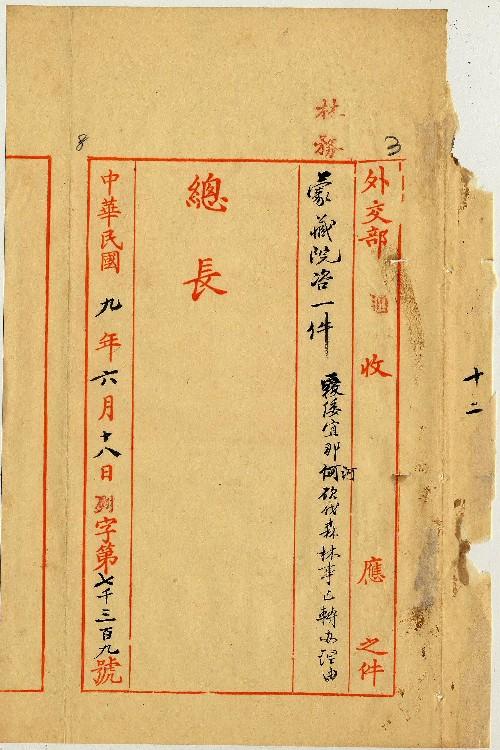 十二
3
外交部收應之件
林務
蒙藏院咨一件
倭宜那河砍伐森林事已轉理由
總長
8
中華民國九年六月十八日列字第七千三百九號